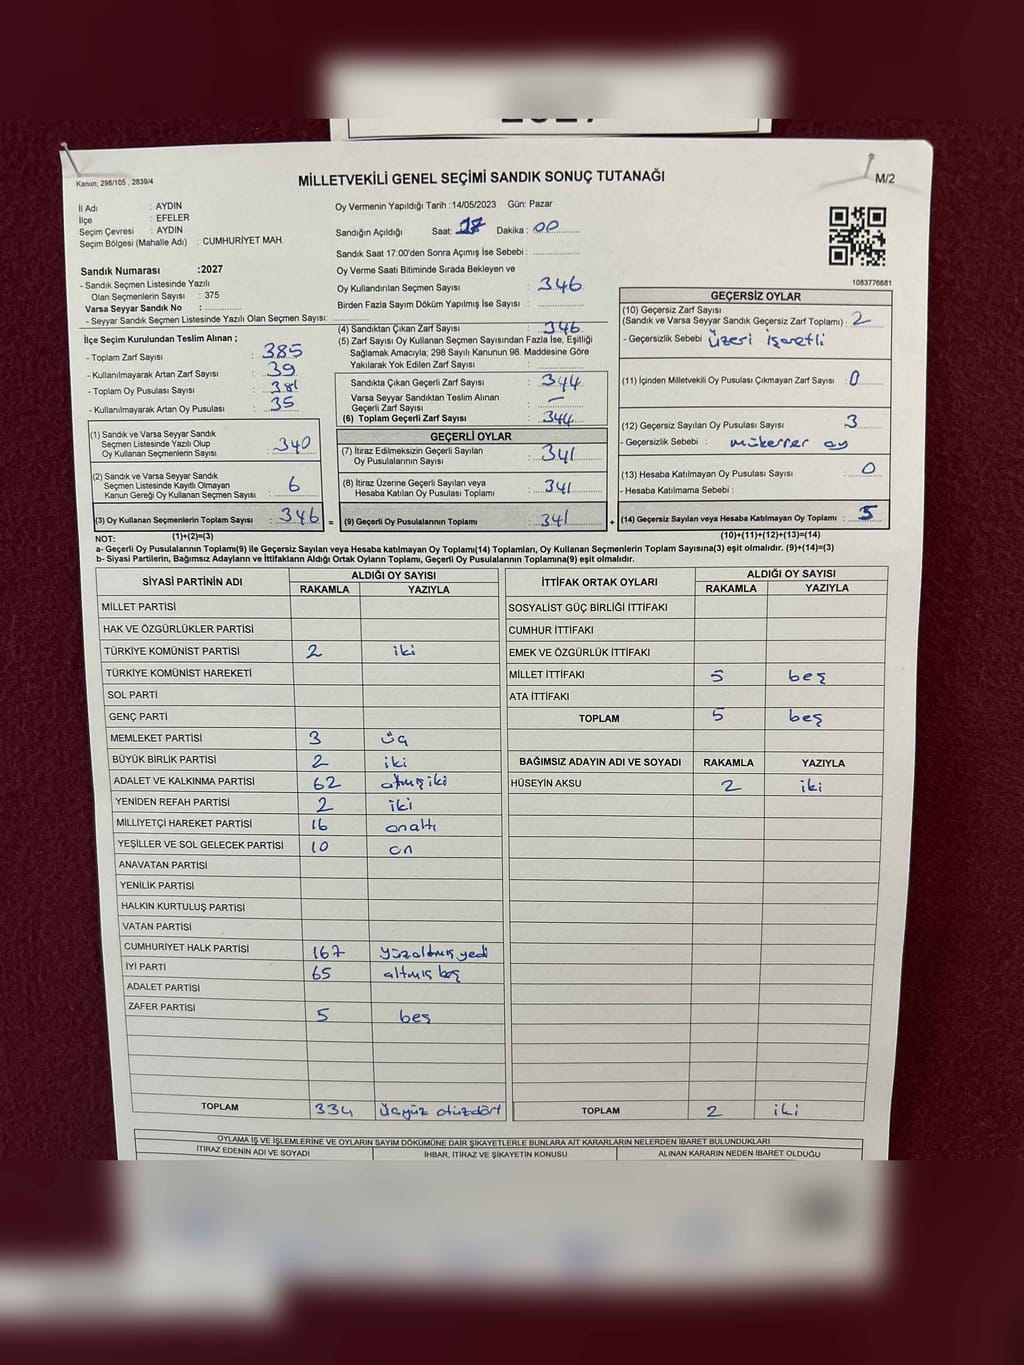 2027
Kanun; 298/105 , 2839/4
MİLLETVEKİLİ GENEL SEÇİMİ SANDIK SONUÇ TUTANAĞI
M/2
İl Adı : AYDIN
İlçe : EFELER
Seçim Çevresi : AYDIN
Seçim Bölgesi (Mahalle Adı) : CUMHURİYET MAH.
Sandık Numarası :2027
- Sandık Seçmen Listesinde Yazılı
Olan Seçmenlerin Sayısı : 375
Varsa Seyyar Sandık No :
- Seyyar Sandık Seçmen Listesinde Yazılı Olan Seçmen Sayısı:
Oy Vermenin Yapıldığı Tarih :14/05/2023 Gün: Pazar
Sandığın Açıldığı Saat: Dakika : 00
Sandık Saat 17:00'den Sonra Açımış İse Sebebi :
Oy Verme Saati Bitiminde Sırada Bekleyen ve
Oy Kullandırılan Seçmen Sayısı : 346
Birden Fazla Sayım Döküm Yapılmış İse Sayısı :
1083776681
İlçe Seçim Kurulundan Teslim Alınan ;
- Toplam Zarf Sayısı : 385
- Kullanılmayarak Artan Zarf Sayısı : 39
- Toplam Oy Pusulası Sayısı : 381
- Kullanılmayarak Artan Oy Pusulası : 35
(1) Sandık ve Varsa Seyyar Sandık
Seçmen Listesinde Yazılı Olup
Oy Kullanan Seçmenlerin Sayısı : 340
(2) Sandık ve Varsa Seyyar Sandık
Seçmen Listesinde Kayıtlı Olmayan
Kanun Gereği Oy Kullanan Seçmen Sayısı : 6
(3) Oy Kullanan Seçmenlerin Toplam Sayısı : 346 =
(1)+(2)=(3)
(4) Sandıktan Çıkan Zarf Sayısı : 346
(5) Zarf Sayısı Oy Kullanan Seçmen Sayısından Fazla İse, Eşitliği
Sağlamak Amacıyla; 298 Sayılı Kanunun 98. Maddesine Göre
Yakılarak Yok Edilen Zarf Sayısı :
Sandıkta Çıkan Geçerli Zarf Sayısı : 344
Varsa Seyyar Sandıktan Teslim Alınan
Geçerli Zarf Sayısı : –
(6) Toplam Geçerli Zarf Sayısı : 344
GEÇERLİ OYLAR
(7) İtiraz Edilmeksizin Geçerli Sayılan
Oy Pusulalarının Sayısı : 341
(8) İtiraz Üzerine Geçerli Sayılan veya
Hesaba Katılan Oy Pusulası Toplamı : 341
(9) Geçerli Oy Pusulalarının Toplamı : 341 +
GEÇERSİZ OYLAR
(10) Geçersiz Zarf Sayısı
(Sandık ve Varsa Seyyar Sandık Geçersiz Zarf Toplamı) : 2
- Geçersizlik Sebebi : üzeri işaretli
(11) İçinden Milletvekili Oy Pusulası Çıkmayan Zarf Sayısı : 0
(12) Geçersiz Sayılan Oy Pusulası Sayısı : 3
- Geçersizlik Sebebi : mükerrer oy
(13) Hesaba Katılmayan Oy Pusulası Sayısı : 0
- Hesaba Katılmama Sebebi :
(14) Geçersiz Sayılan veya Hesaba Katılmayan Oy Toplamı : 5
(10)+(11)+(12)+(13)=(14)
NOT:
a- Geçerli Oy Pusulalarının Toplamı(9) ile Geçersiz Sayılan veya Hesaba katılmayan Oy Toplamı(14) Toplamları, Oy Kullanan Seçmenlerin Toplam Sayısına(3) eşit olmalıdır. (9)+(14)=(3)
b- Siyasi Partilerin, Bağımsız Adayların ve İttifakların Aldığı Ortak Oyların Toplamı, Geçerli Oy Pusulalarının Toplamına(9) eşit olmalıdır.
SİYASİ PARTİNİN ADI ALDIĞI OY SAYISI
RAKAMLA YAZIYLA
MİLLET PARTİSİ
HAK VE ÖZGÜRLÜKLER PARTİSİ
TÜRKİYE KOMÜNİST PARTİSİ 2 iki
TÜRKİYE KOMÜNİST HAREKETİ
SOL PARTİ
GENÇ PARTİ
MEMLEKET PARTİSİ 3 üç
BÜYÜK BİRLİK PARTİSİ 2 iki
ADALET VE KALKINMA PARTİSİ 62 atmış iki
YENİDEN REFAH PARTİSİ 2 iki
MİLLİYETÇİ HAREKET PARTİSİ 16 onaltı
YEŞİLLER VE SOL GELECEK PARTİSİ 10 on
ANAVATAN PARTİSİ
YENİLİK PARTİSİ
HALKIN KURTULUŞ PARTİSİ
VATAN PARTİSİ
CUMHURİYET HALK PARTİSİ 167 yüzaltmış yedi
İYİ PARTİ 65 altmış beş
ADALET PARTİSİ
ZAFER PARTİSİ 5 beş
TOPLAM 334 üçyüz otuzdört
İTTİFAK ORTAK OYLARI ALDIĞI OY SAYISI
RAKAMLA YAZIYLA
SOSYALİST GÜÇ BİRLİĞİ İTTİFAKI
CUMHUR İTTİFAKI
EMEK VE ÖZGÜRLÜK İTTİFAKI
MİLLET İTTİFAKI 5 beş
ATA İTTİFAKI
TOPLAM 5 beş
BAĞIMSIZ ADAYIN ADI VE SOYADI RAKAMLA YAZIYLA
HÜSEYİN AKSU 2 iki
TOPLAM 2 iki
OYLAMA İŞ VE İŞLEMLERİNE VE OYLARIN SAYIM DÖKÜMÜNE DAİR ŞİKAYETLERLE BUNLARA AİT KARARLARIN NELERDEN İBARET BULUNDUKLARI
İTİRAZ EDENİN ADI VE SOYADI İHBAR, İTİRAZ VE ŞİKAYETİN KONUSU ALINAN KARARIN NEDEN İBARET OLDUĞU